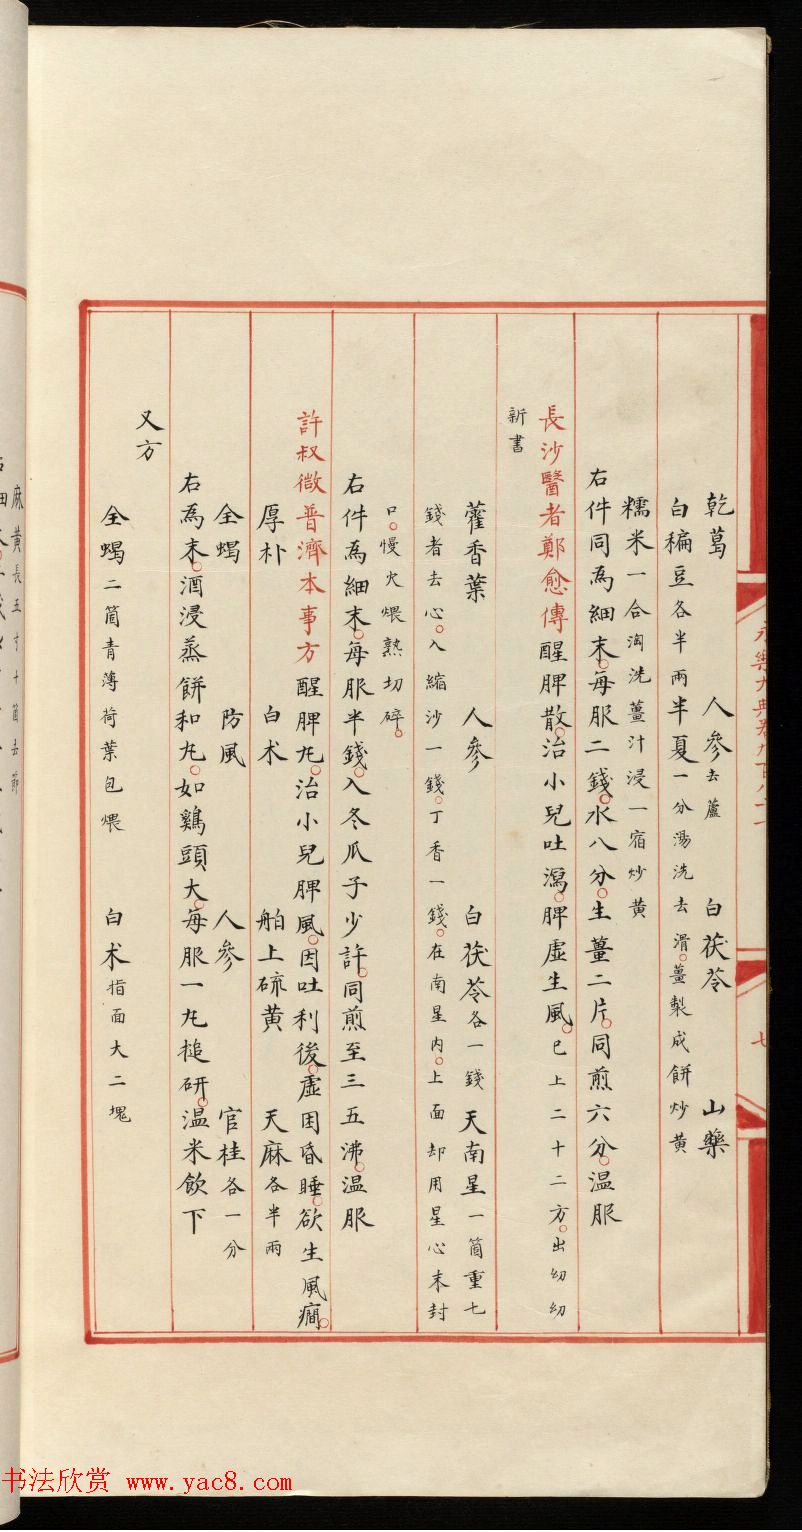 乾葛 人參去蘆 白茯苓 山藥
白稨豆各半兩半夏一分湯洗去滑。薑製成餅炒黃
糯米一合淘洗薑汁浸一宿炒黃
右件同為細末。每服二錢。水八分。生薑二片。同煎六分。温服
長沙醫者鄭愈傳醒脾散。治小兒吐瀉。脾虛生風。已上二十二方。出幼幼
新書
藿香葉 人參 白茯苓各一錢 天南星一箇重七
錢者去心。入縮沙一錢。丁香一錢。在南星內。上面却用星心末封
口。慢火煨熟切碎。
右件為細末。每服半錢。入冬瓜子少許。同煎至三五沸。温服
許叔微普濟本事方醒脾丸。治小兒脾風。因吐利後。虛困昏睡。欲生風癇。
厚朴 白术 舶上硫黃 天麻各半兩
全蝎 防風 人參 官桂各一分
右為末。酒浸蒸餅和丸。如鷄頭大。每服一丸搥研。温米飲下
又方
全蝎二箇青薄荷葉包煨 白术指面大二塊
麻黃長五寸十箇去節
書法欣赏 www.yac8.com